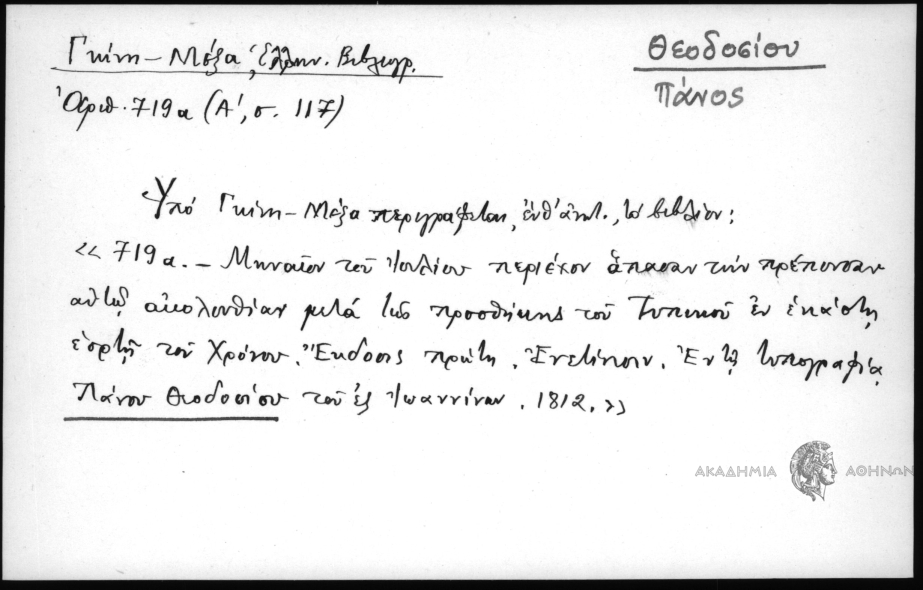 Γκίνη – Μέξα, Ἑλλην. Βιβλιογρ.
Θεοδοσίου
Πάνος
Ἀριθ. 719α (Α΄, σ. 117)
Ὑπό Γκίνη – Μέξα περιγράφεται, ἐνθ' ἀνωτ., τό βιβλίον:
<< 719α. – Μηναῖον τοῦ Ἰουλίου περιέχον ἅπασαν τήν πρέπουσαν
αὐτῷ ἀκολουθίαν μετά τῆς προσθήκης τοῦ Τυπικοῦ ἐν ἑκάστῃ
ἑορτῇ τοῦ Χρόνου. Ἔκδοσις πρώτη. Ἐνετίησιν. Ἐν τῇ τυπογραφίᾳ
Πάνου Θεοδοσίου τοῦ ἐξ Ἰωαννίνων. 1812. >>
ΑΚΑΔΗΜΙΑ ΑΘΗΝΩΝ